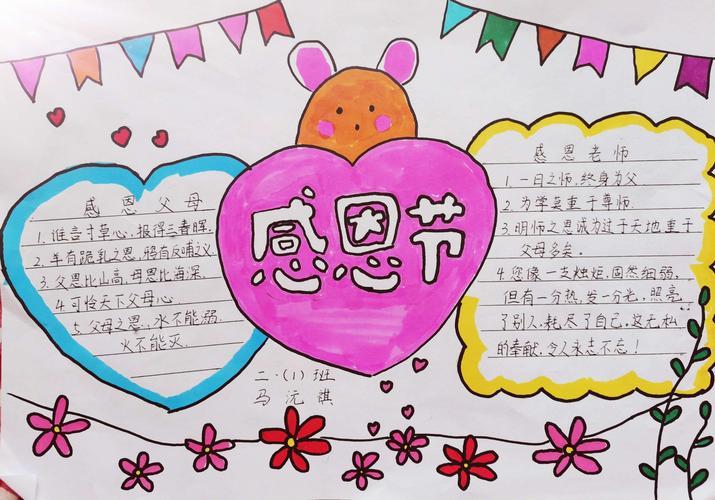 感恩父母
1. 谁言寸草心,报得三春晖.
2. 羊有跪乳之恩,鸦有反哺之义.
3. 父恩比山高,母恩比海深.
4 可怜天下父母心.
5. 父母之恩,水不能溺.
火不能灭.
感恩节
二·(1)班
马沅祺
感恩老师
1. 一日之师,终身为父
2. 为学莫重于尊师.
3. 明师之恩诚为过于天地重于
父母多矣。
4. 您像一支烛炬,固然细弱,
但有一分热,发一分光,照亮
了别人,耗尽了自己。这无私
的奉献,令人永志不忘!